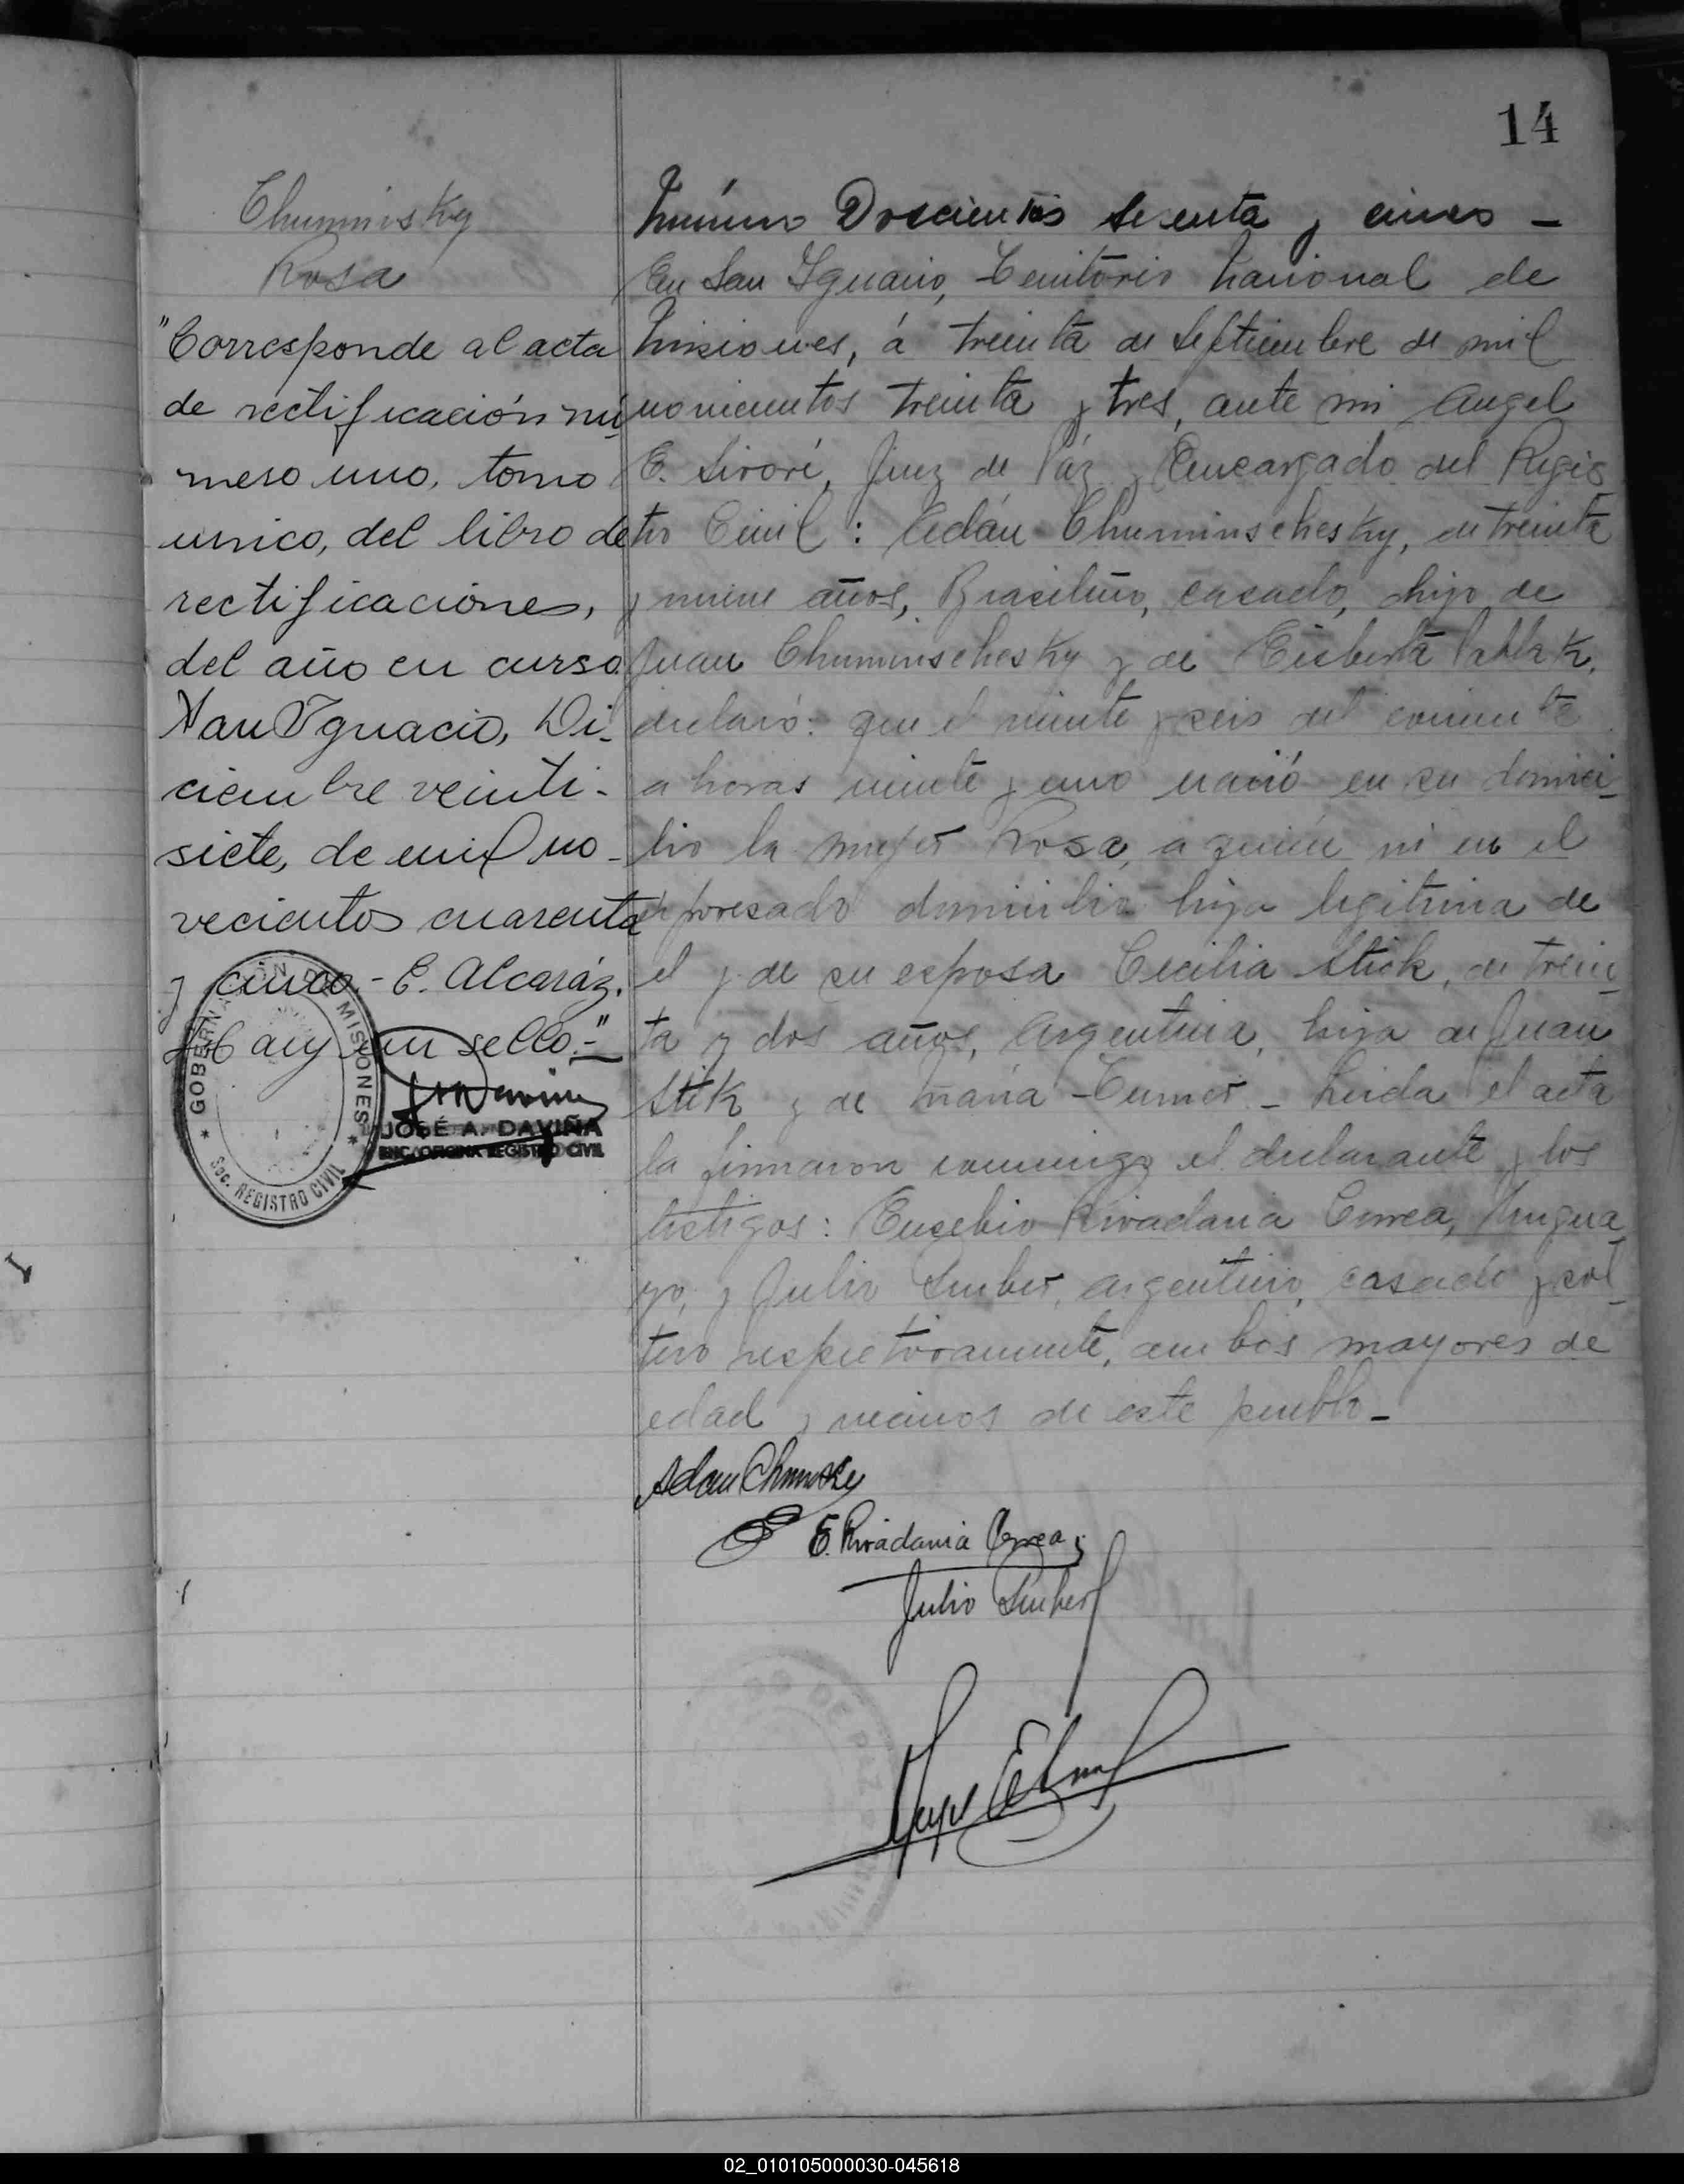 14
Chuminsky
Rosa
"Corresponde al acta
de rectificación nú-
mero uno, tomo
unico, del libro de
rectificaciones,
del año en curso.
San Ygnacio, Di-
ciembre veinti-
siete, de mil no-
vecientos cuarenta
y cinco.- E. Alcaráz.
Hay un sello.-"
GOBERNACIÓN DE MISIONES
Sec. REGISTRO CIVIL
JOSÉ A. DAVIÑA
ENC. OFICINA REGISTRO CIVIL
Número Doscientos sesenta y cinco -
En San Ygnacio, Territorio Nacional de
Misiones, á treinta de Septiembre de mil
novecientos treinta y tres, ante mi Angel
E. Sivori, Juez de Páz y Encargado del Regis
tro Civil: Adán Chuminschesky, de treinta
y nueve años, Brasileño, casado, hijo de
Juan Chuminschesky y de
declaró: que el veinte y seis del corriente
a horas veinte y uno nació en su domici-
lio la mujer Rosa, a quién vi en el
expresado domicilio hija legitima de
el y de su esposa Cecilia Stick, de trein-
ta y dos años, Argentina, hija de Juan
Stik y de María - Leida el acta
la firmaron conmigo el declarante y los
testigos: Eusebio Rivadavia Correa, Urugua
yo, y Julio argentino, casado y sol-
tero respectivamente, ambos mayores de
edad y vecinos de este pueblo -
Adan
E. Rivadavia Correa
Julio
02_010105000030-045618